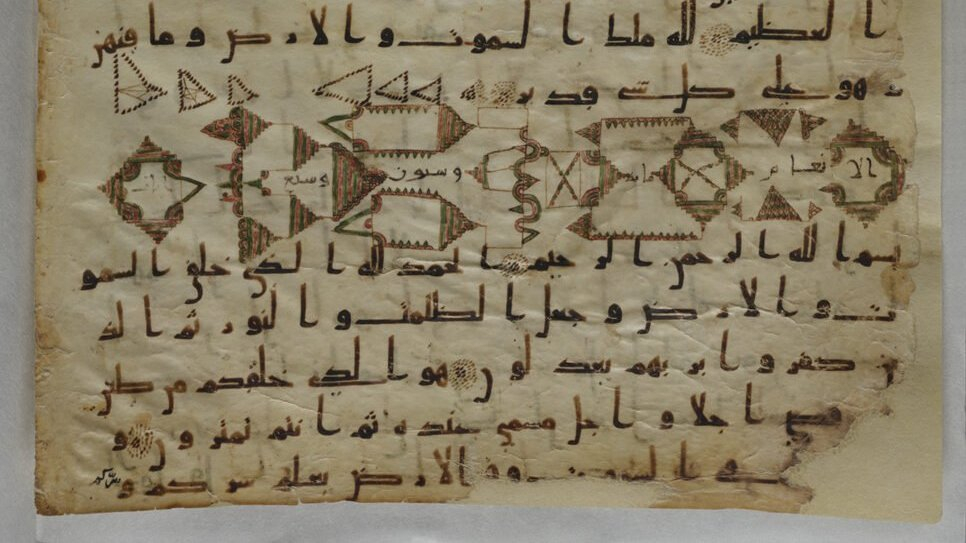 العظيم لله ملك السموت والارض وما فيهن
وهو على كل شى قدير
الانعام وستون وسبع
بسم الله الرحمن الرحيم الحمد لله الذى خلق السمو
ت والارض وجعل الظلمت والنور ثم الذ
ين كفروا بربهم يعدلون هو الذى خلقكم من طين
قضى اجلا واجل مسمى عنده ثم انتم تمترون و
فى السموت وفى الارض يعلم سركم و